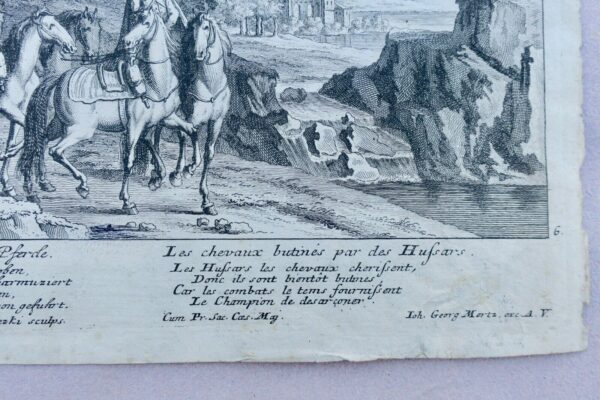 Pferde.
oben,
armuziert
en,
on gefuhrt.
zki sculps.
Les chevaux butinés par des Hussars.
Les Hussars les chevaux cherissent,
Donc ils sont bientôt butinés,
Car les combats le tems fournissent
Le Champion de desarçoner.
Cum Pr. Sac. Cæs. Maj.
Ioh. Georg Mertz. exc. A. V.
6.